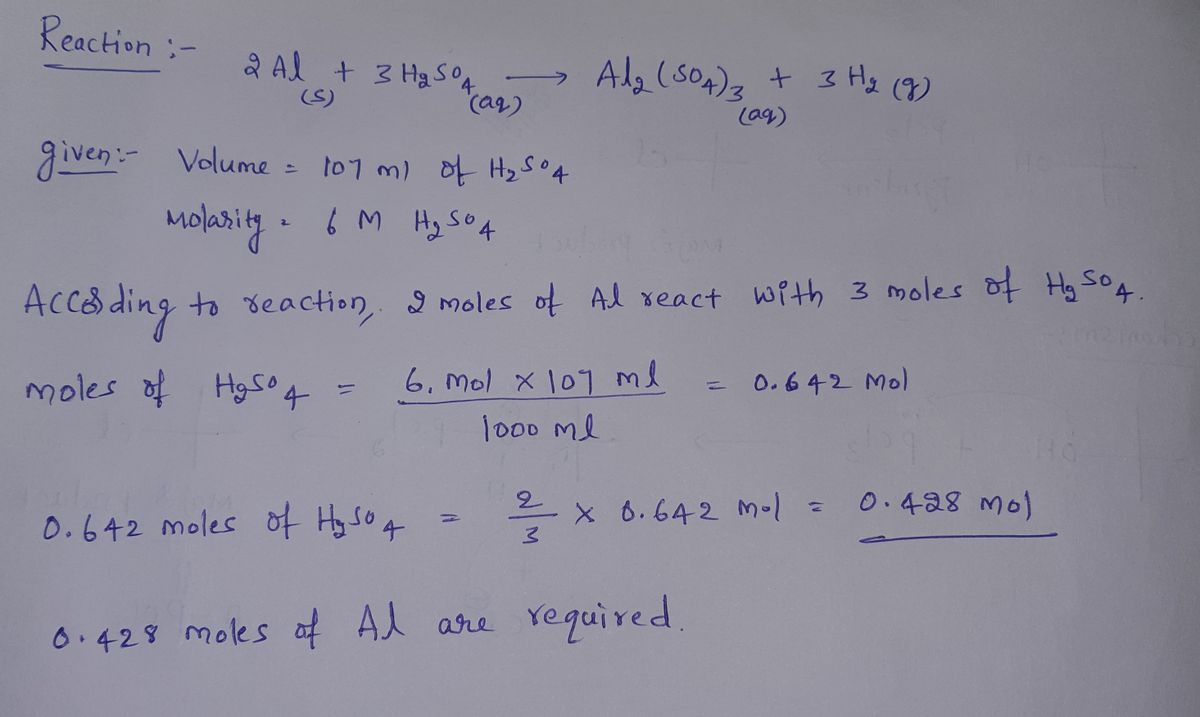 Reaction :-
2 Al (s) + 3 H2SO4 (aq) → Al2(SO4)3 (aq) + 3 H2 (g)
given:- Volume = 107 ml of H2SO4
Molarity = 6 M H2SO4
According to reaction, 2 moles of Al react with 3 moles of H2SO4.
moles of H2SO4 = 6. mol × 107 ml / 1000 ml = 0.642 mol
0.642 moles of H2SO4 = 2/3 × 0.642 mol = 0.428 mol
0.428 moles of Al are required.